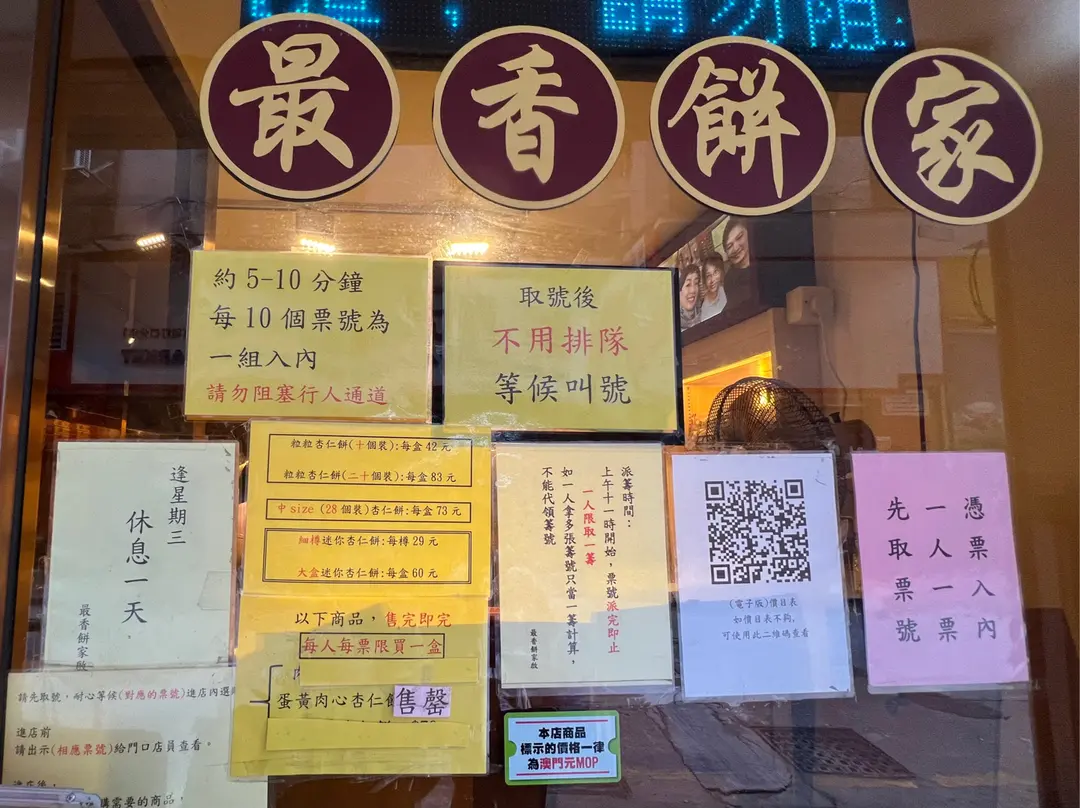 請勿阻
最香餅家
約5-10分鐘
每10個票號為
一組入內
請勿阻塞行人通道
取號後
不用排隊
等候叫號
逢星期三
休息一天
最香餅家啟
粒粒杏仁餅(十個裝):每盒42元
粒粒杏仁餅(二十個裝):每盒83元
中size(28個裝)杏仁餅:每盒73元
細樽迷你杏仁餅:每樽29元
大盒迷你杏仁餅:每盒60元
以下商品,售完即完
每人每票限買一盒
蛋黃肉心杏仁餅
售罄
派籌時間:
上午十一時開始,票號派完即止
一人限取一籌
如一人拿多張籌號只當一籌計算,
不能代領籌號
最香餅家啟
(電子版)價目表
如價目表不夠,
可使用此二維碼查看
憑票入內
一人一票
先取票號
請先取號,耐心等候(對應的票號)進店內選
進店前
請出示(相應票號)給門口店員查看。
進店後,
購需要的商品,
本店商品
標示的價格一律
為澳門元MOP